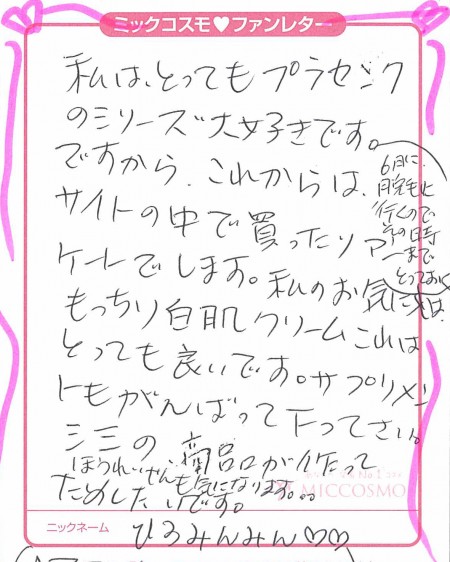 ミックコスモ♥ファンレター
私は、とってもプラセンタ
のシリーズ大好きです。
ですから、これからは、
サイトの中で買ったりアン
ケートでします。私のお気に入りは、
もっちり白肌クリームこれは
とっても良いです。サプリメン
トもがんばって下ってさい。
シミの商品が作って
ほうれいせんも気になります。。
ためしたいです。
6月に、
脱毛に
行くので
その時
まで
とっておく
MICCOSMO
ニックネーム
ひろみんみん♡♡